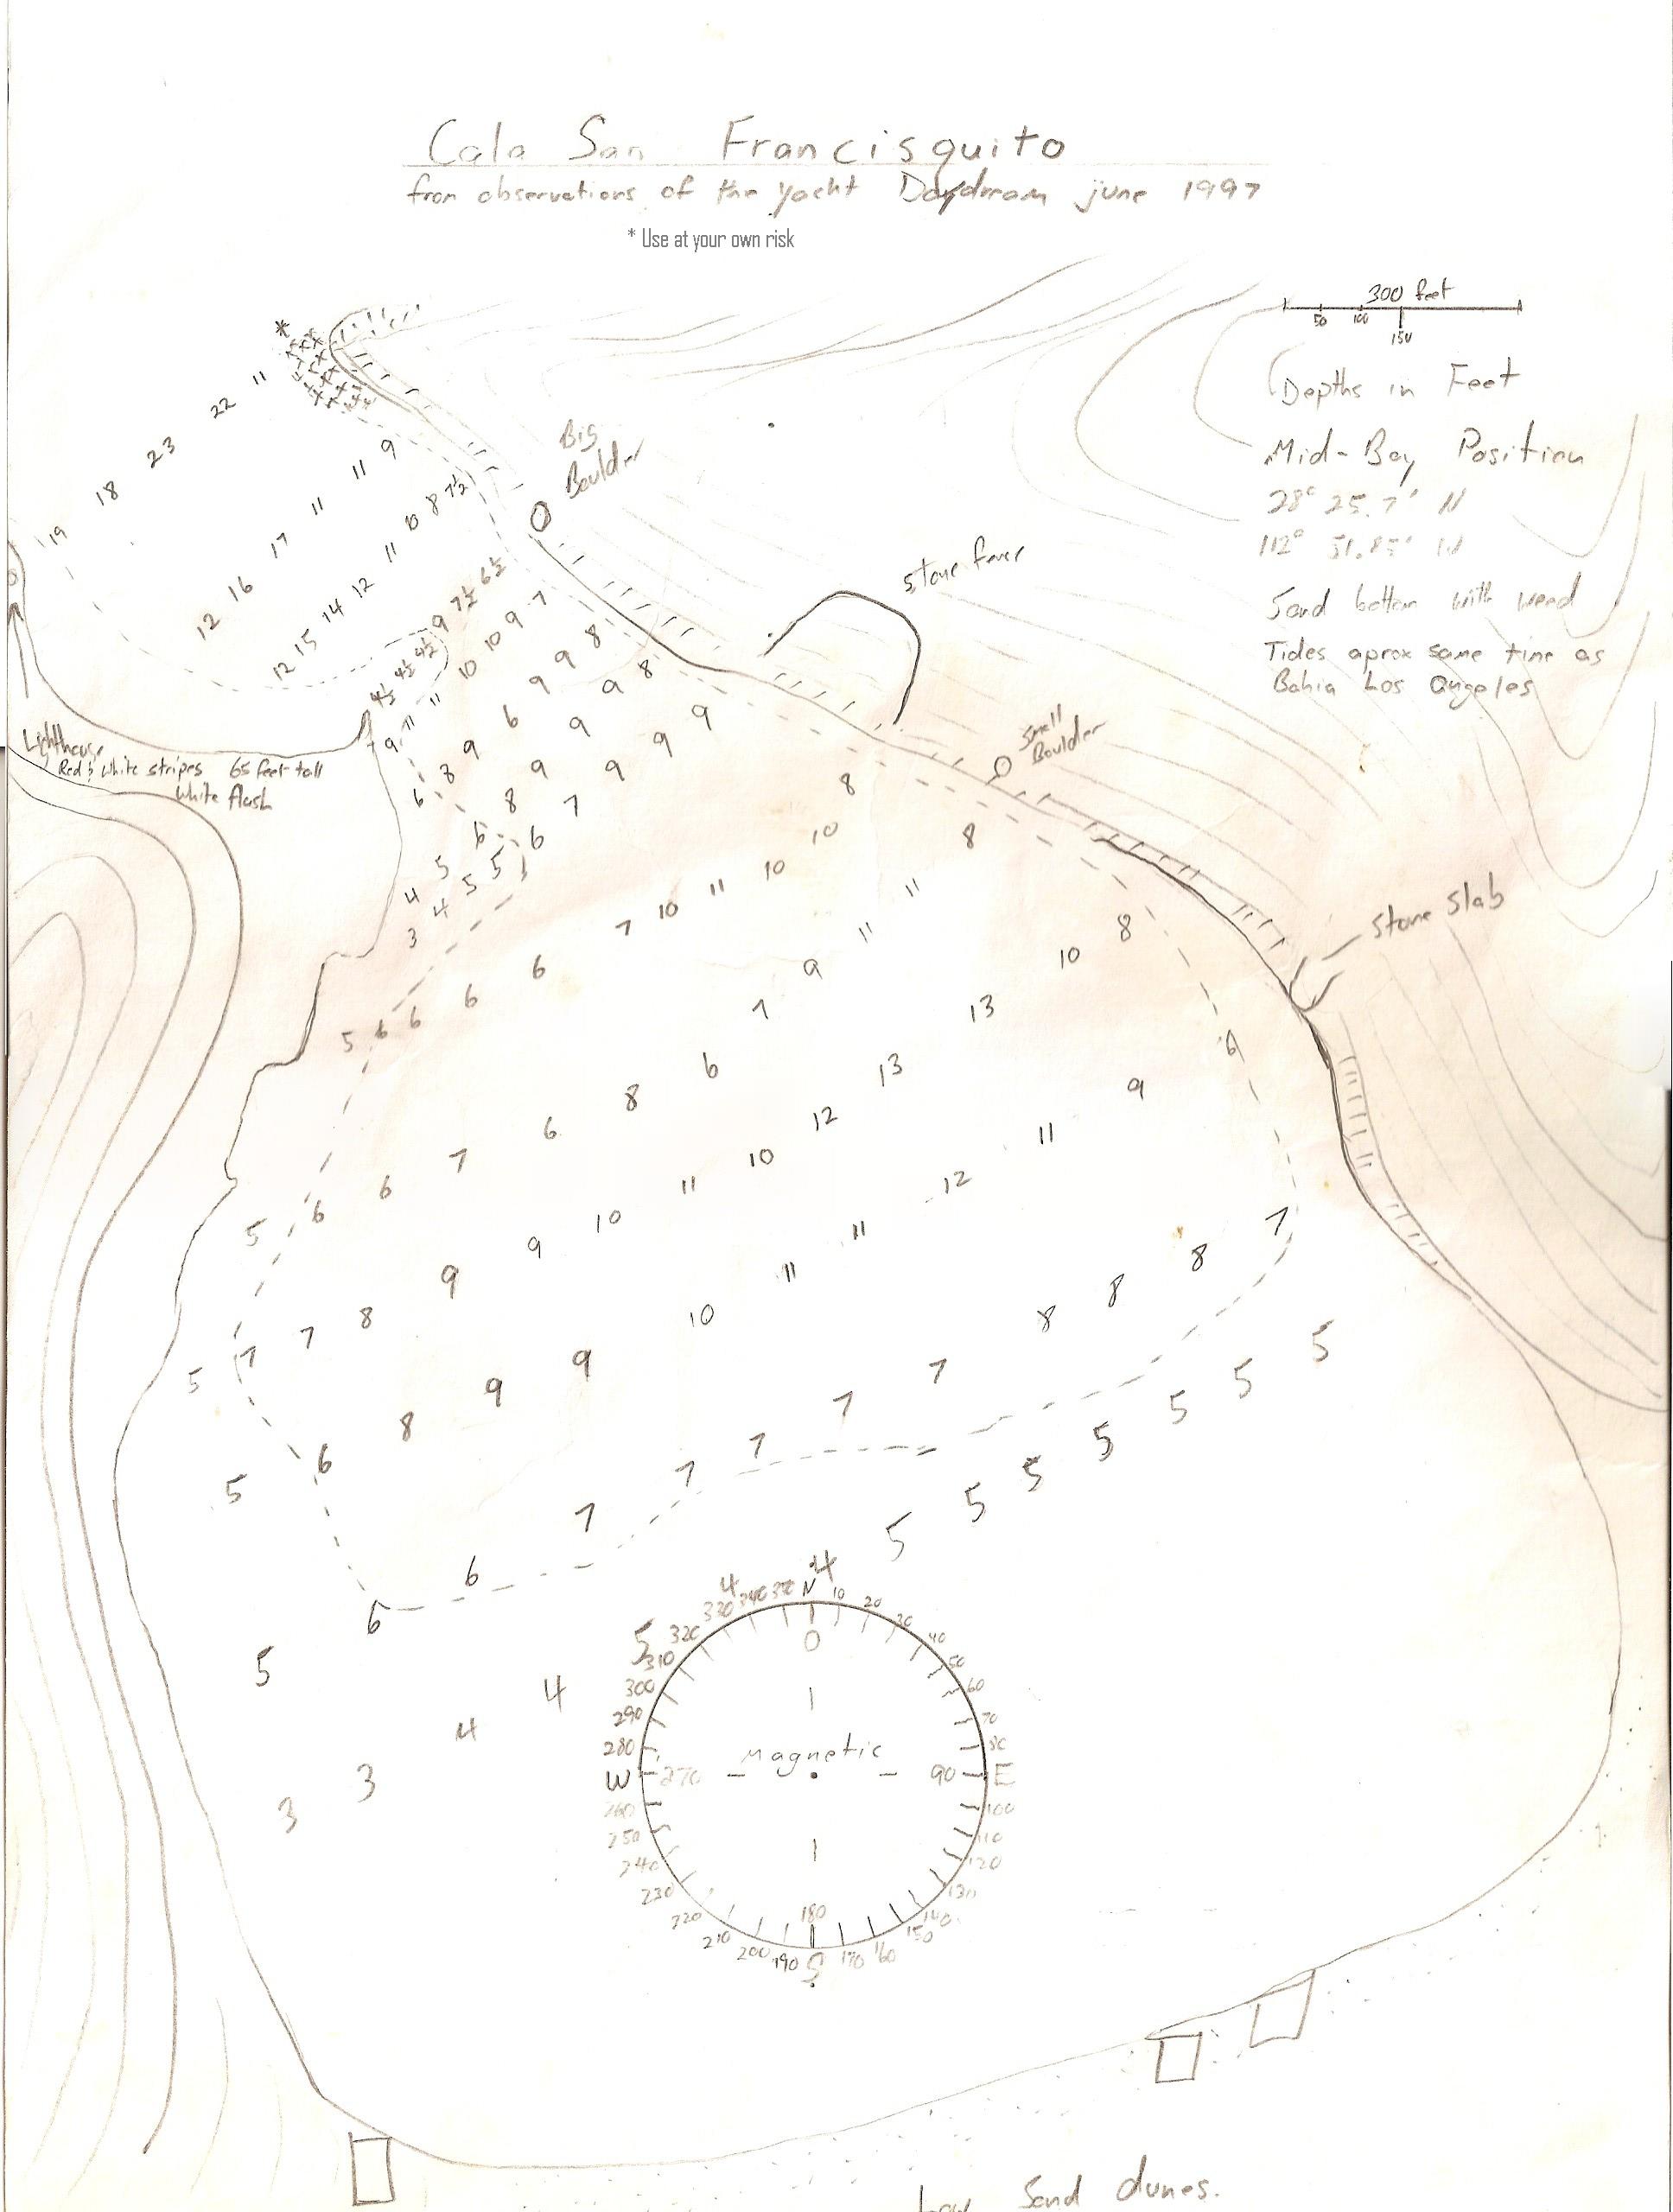 Cala San Francisquito
from observations of the yacht Daydream june 1997
* Use at your own risk
300 feet
50 100
150
Depths in Feet
Mid-Bay Position
28° 25.7' N
112° 51.85' W
Sand bottom with weed
Tides aprox same time as
Bahia Los Angeles
Big
Boulder
stone
Small
Boulder
Stone Slab
Lighthouse
Red & White stripes 65 feet tall
White flash
19 18 23 22 11
12 16 17 11 11 9
12 15 14 12 11 10 8 7½
4½ 4½ 4½ 9 7½ 6½
9 11 11 10 10 9 7
6 8 9 6 9 9 8
6 8 9 9 9 8
5 5 6 7 9 9 9
4 4 5 5 6
3
5 6 6 6 6 7 10 11 10 10 8
5 6 6 7 6 8 6 7 9 11 11 8
5 7 7 8 9 9 10 11 10 12 13 13 10 8
5 6 8 9 9 10 11 11 12 11 9 6
6 6 7 7 7 7 7 8 8 8 7
5 5 5 5 5 5 5
5
3 3 4 4 5 4 4
N 10 20 30 40 50 60 70 80
90 E
100 110 120 130 140 150 160 170
180
S
190 200 210 220 230 240 250 260
W 270
280 290 300 310 320 330 340 350
0
Magnetic
Low Sand dunes.